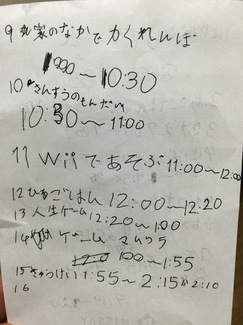 9 家のなかでかくれんぼ
～10:30
10 さんすうのもんだい
10:30～11:00
11 Wiiであそぶ11:00～12:00
12 ひるごはん 12:00～12:20
13 人生ゲーム12:20～1:00
14 ゲーム
1:00～1:55
15 きゅうけい1:55～2:15か2:10
16